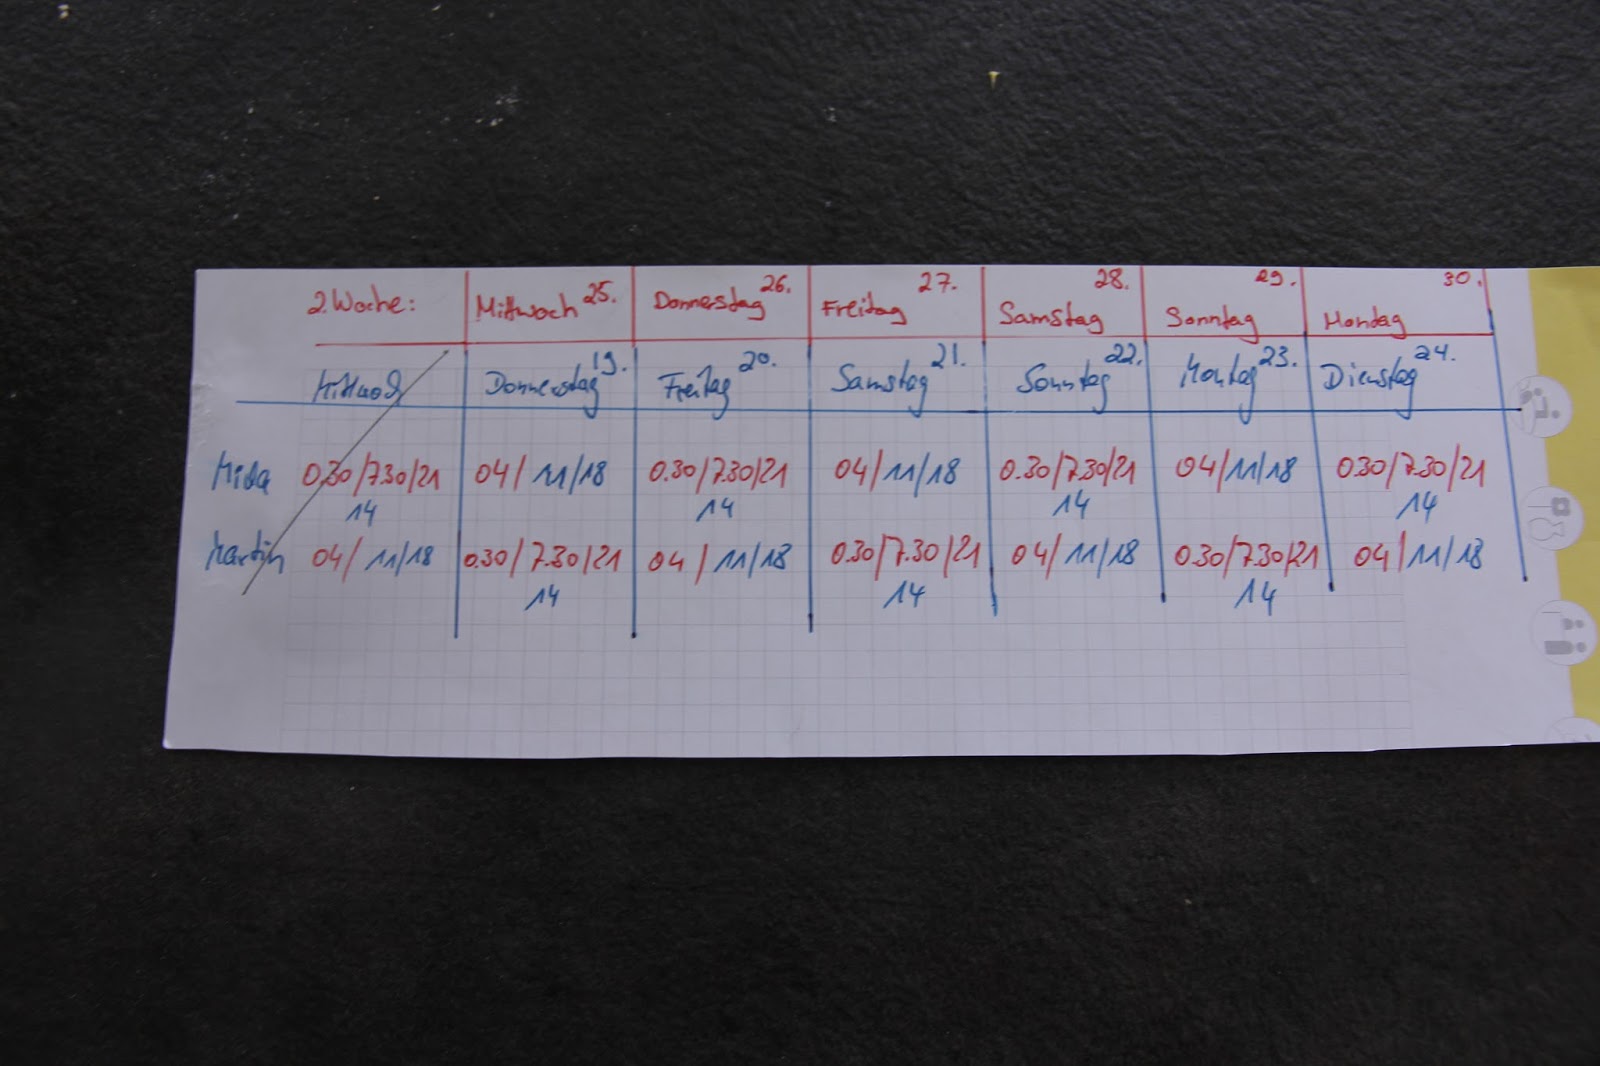 2. Woche: Mittwoch 25. Donnerstag 26. Freitag 27. Samstag 28. Sonntag 29. Montag 30.
Mittwoch Donnerstag 19. Freitag 20. Samstag 21. Sonntag 22. Montag 23. Dienstag 24.
0.30/7.30/21 04/11/18 0.30/7.30/21 04/11/18 0.30/7.30/21 04/11/18 0.30/7.30/21
14 14 14 14
Martin 04/11/18 0.30/7.30/21 04/11/18 0.30/7.30/21 04/11/18 0.30/7.30/21 04/11/18
14 14 14